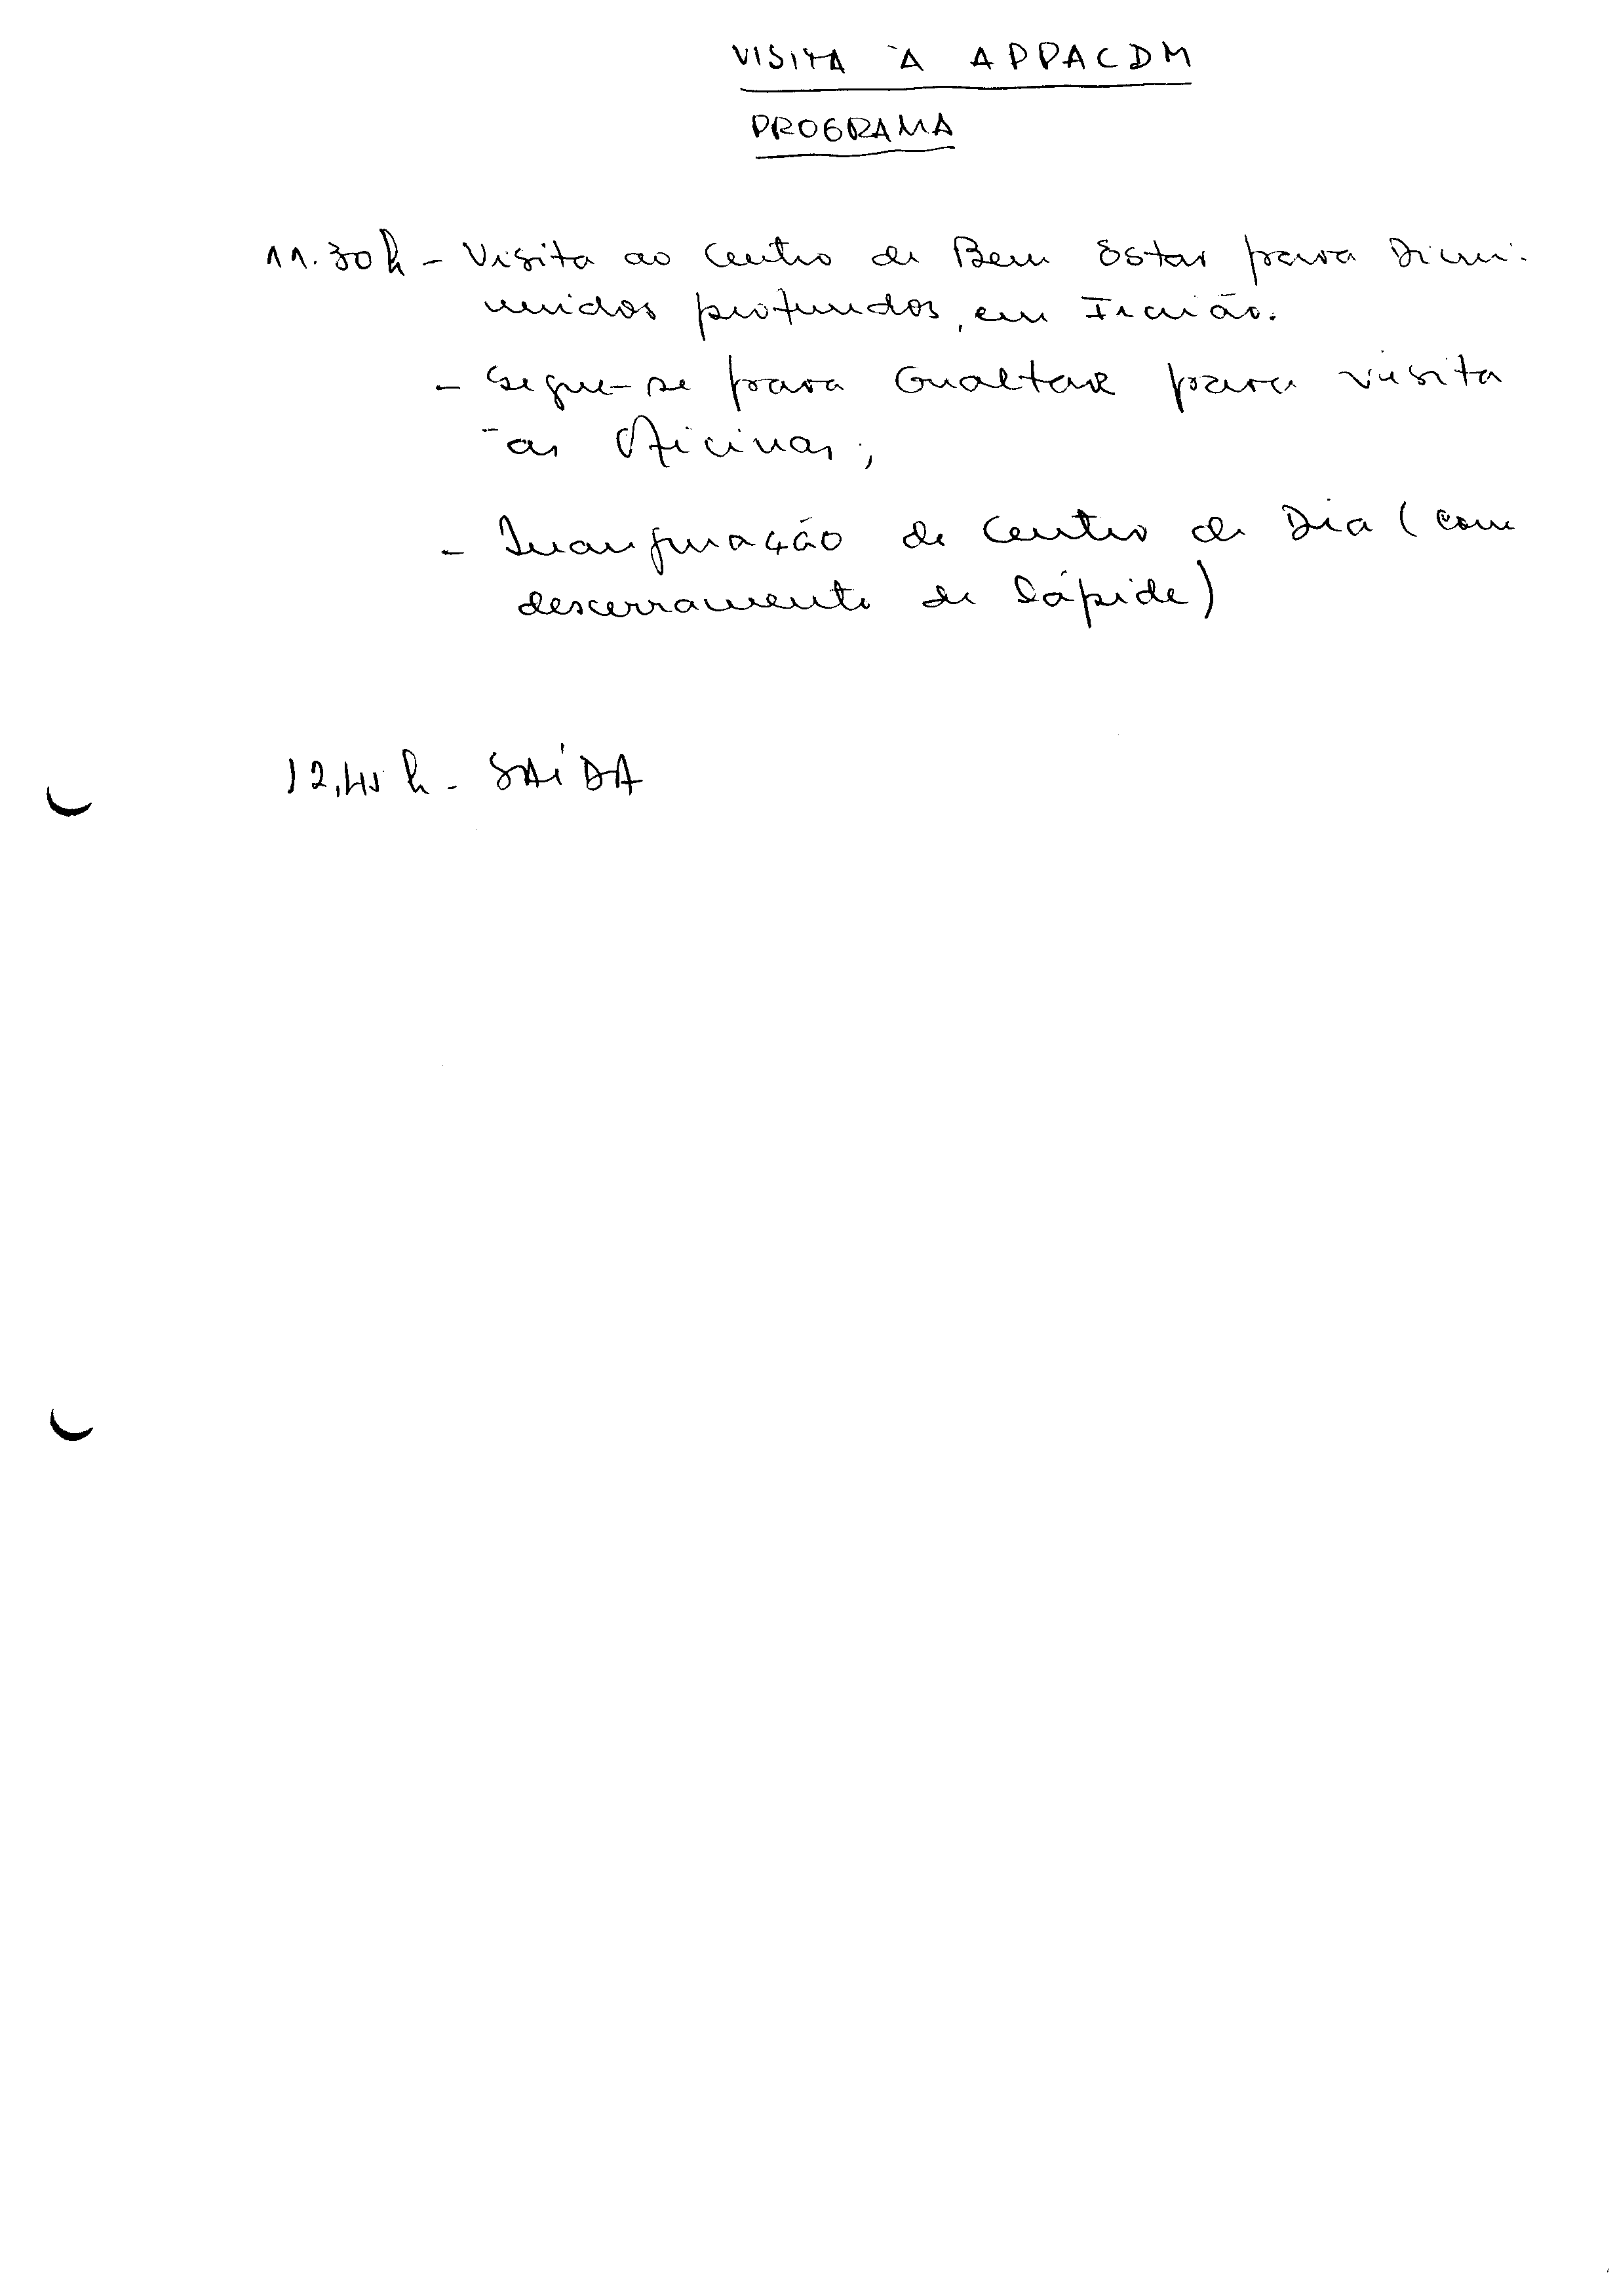 VISITA À APPACDM
PROGRAMA
11.30h - Visita ao Centro de Bem Estar para Dimi-
nuidos profundos, em Fraião.
- Segue-se para Gualtar para visita
às Oficinas;
- Inauguração de Centro de Dia (com
descerramento de lápide)
12,45 h - SAÍDA